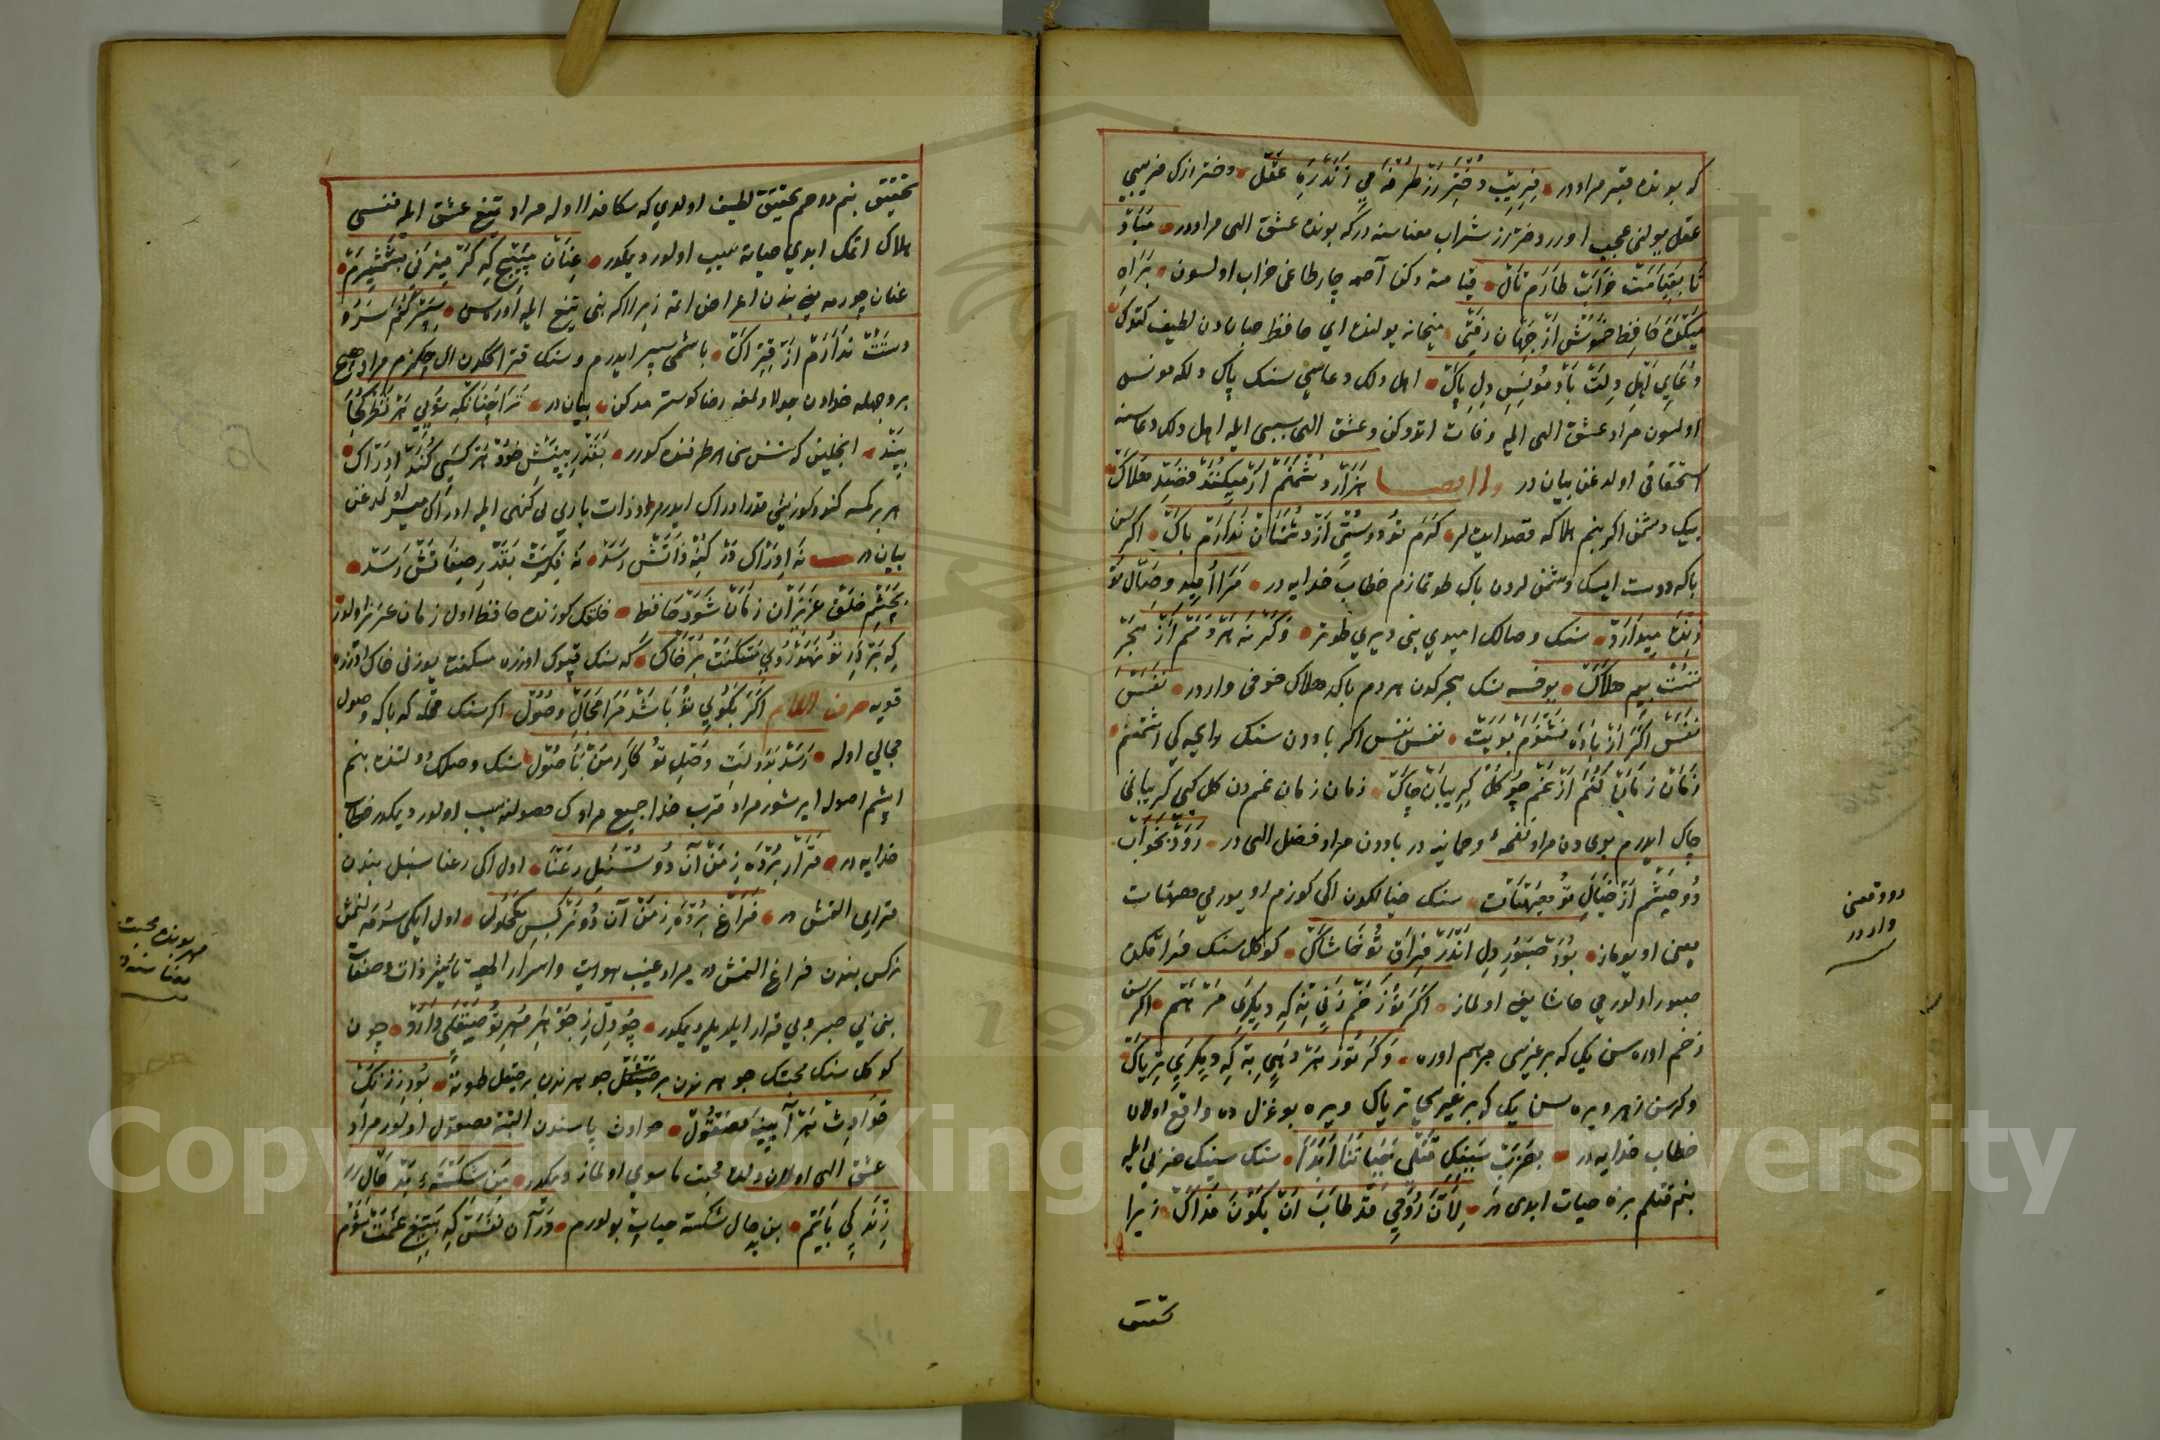 که بونده قبر مراددر فِرِیبِ دُخْتَرِ رَزْ طُرْفَه مِي زَنَدْ رَهِ عَقْل دختر رزک فریبی
عقل یولنی عجیب اورر دختر رز شراب معناسنه درکه بونده عشق الهی مراددر مَبَادْ
تَا بَقِیَامَتْ خَرَابْ طَارَمِ تَاكْ قیامته دکن آصمه چارطاغی خراب اولسون بَرَاهِ
مَیْکَدَه حَافِظْ خُوشْ اَزْ جَهَان رَفْتِي میخانه یولنده ای حافظ جهاندن لطیف کتدک
دُعَايِ اَهْلِ دِلَتْ بَادْ مُونِسِ دِلِ پَاكْ اهل دلک دعاسی سنک پاك دلکه مونس
اولسون مراد عشق الهی ایله وفات ایتدوکن و عشق الهی سببی ایله اهل دلک دعاسنه
استحقاقی اولدغن بیان در وله ایضا هَزَارْ دُشْمَنَمْ اَرْ مِیکُنَنْدْ قَصْدِ هَلَاكْ
بیک دشمن اکر بنم هلاکمه قصد ایده لر کَرَمْ تُو دُوسْتِي اَزْ دُشْمَنَانْ نَدَارَمْ بَاكْ اکر سن
باکه دوست ایسک دشمنلردن باك طوتمازم خطاب خدایه در مَرَا اُمِیدِ وِصَالِ تُو
زِنْدَه مِیدَارَدْ سنک وصالک امیدی بنی دیری طوتر وَ کَرْنَه هَرْ دَمَمْ اَزْ هَجْرِ
تُسْتْ بِیمِ هَلَاكْ یوخسه سنک هجرکدن هر دم باکه هلاك خوفی واردر نَفَسْ
نَفَسْ اَکَرْ اَزْ بَادْ نَشْنَوَمْ بُویَتْ نفس نفس اکر باددن سنک رایحه کی اشتمنم
زَمَانْ زَمَانْ کُنَمْ اَزْ غَمْ چُو کُلْ کِرِیبَانْ چَاكْ زمان زمان غمدن کل کبی کریبانی
چاك ایدرم بویدن مراد نفحهٔ رحمانیه در باددن مراد فضل الهی در رَوَدْ بَخْوَابْ
دُو چَشْمْ اَزْ خَیَالِ تُو هَیْهَاتْ سنک خیالکدن ایکی کوزم اویورمی هیهات
یعنی اویوماز بُوَدْ صَبُورِ دِلْ اَنْدَرْ فِرَاقِ تُو حَاشَاكْ کوکل سنک فراقکده
صبور اولورمی حاشا یعنی اولماز اَکَرْ تُو زَخْمْ زَنِي بِهْ کِه دِیکَرِي مَرْهَمْ اکر سن
زخم اوره سن یک که بر غیری مرهم اوره وَکَرْ تُو زَهْرْ دِهِي بِهْ کِه دِیکَرِي تِرْیَاكْ
وکر سن زهر ویره سن یک که بر غیریسی تریاك ویره بو غزل ده واقع اولان
خطاب خدایه در بِضَرْبِ سَیْفِكَ قَتْلِي حَیَاتُنَا اَبَدَا سنک سیفک ضربی ایله
بنم قتلم بزه حیات ابدی در لِاَنَّ رُوحِي قَدْ طَابَ اَنْ یَکُونَ فِدَاكْ زیرا
دو وقعنی
واردر
تحقیق بنم روحم تحقیق لطیف اولدی که سکا فدا اوله مراد تیغ عشق ایله نفسی
هلاك اتمک ابدی حیاته سبب اولور دیمکدر عِنَانْ مَپِیچْ کِه کَرْ مِیزَنِي بَشَمْشِیرَمْ
عنان چویرمه یعنی بندن اعراض اتمه زیرا اکر بنی تیغ ایله اورسن سِپَرْ کُنَمْ سَرُ و
دَسْتَتْ نَدَارَمْ اَزْ فِتْرَاكْ باشمی سپر ایدرم و سنک فتراکدن ال چکمزم مراد هیچ
بر وجهله خدادن جدا اولمغه رضا کوسترمدکن بیان در تُرَا چُنَانْکِه تُویِي هَرْ نَظَرْ کُجَا
بِینَدْ انجلین که سنسن سنی هر نظر قنده کورر بَقَدْرِ بِینِشِ خُودْ هَرْ کَسِي کُنَدْ اِدْرَاكْ
هر بر کمسه کندو کورنیشی قدر ادراك ایدر مراد ذات باری یی کنهی ایله ادراك میسر اولمدغن
بیان در نَه اِدْرَاكْ دَرْ کُنْهِ ذَاتَشْ رَسَدْ نَه فِکْرَتْ بَقَدْرِ صِفَاتَشْ رَسَدْ
بَچَشْمِ خَلْقْ عَزِیزْ آنْ زَمَانْ شَوَدْ حَافِظْ خلقک کوزنده حافظ اول زمان عزیز اولور
کِه بَرْ دَرِ تُو نَهَدْ رُويِ مَسْکَنَتْ بَرْ خَاكْ که سنک قپوك اوزره مسکنت یوزنی خاك اوزره
قویه حرف اللام اَکَرْ بَکُويِ تُو بَاشَدْ مَرَا مَجَالِ وُصُولْ اکر سنک محله که باکه وصول
مجالی اوله رَسَدْ بَدَوْلَتِ وَصْلِ تُو کَارِ مَنْ بَاُصُولْ سنک وصلک دولتنده بنم
ایشم اصوله ایریشور مراد قرب خدا جمیع مرادك حصولنه سبب اولور دیمکدر خطاب
خدایه در قَرَارْ بُرْدَه زِمَنْ آنْ دُو سُنْبُلِ رَعْنَا اول ایکی رعنا سنبل بندن
قراری التمش در فَرَاغْ بُرْدَه زِمَنْ آنْ دُو نَرْکِسِ مَکْحُولْ اول ایکی سرمه لنمش
نرکس بندن فراغ التمش در مراد غیب هویت و اسرار الهیه تأثیر ذات و صفات
بنی بی صبر و بی قرار ایلدیلر دیمکدر چُو دِلْ زِ جَوْهَرِ مِهْرِ تُو صَیْقَلِي دَارَدْ چون
کوکل سنک محبتک جوهرندن بر صیقل جوهرندن بر صیقل طوته بُوَدْ زِ زَنْکِ
حَوَادِثْ هَرْ آیِینَه مَصْقُولْ حوادث پاسندن البته مصقول اولور مراد
عشق الهی اولان دلده محبت ماسوی اولماز دیمکدر مَنْ شِکَسْتَهٔ بَدْ حَالْ
زِنْدَکِي یَابَمْ بن بدحال شکسته حیات بولورم دَرْ آنْ نَفَسْ کِه بَتِیغِ غَمَتْ شَوَمْ
مهر بونده محبت
معناسنه در